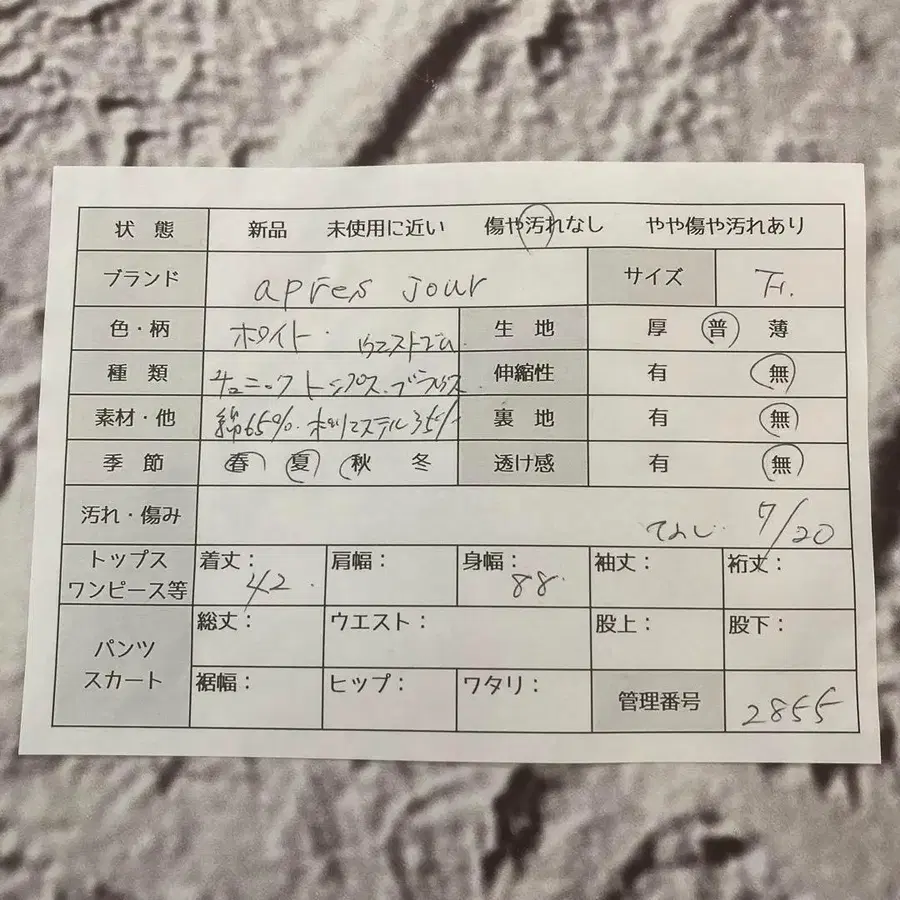 状 態 新品 未使用に近い 傷や汚れなし やや傷や汚れあり
ブランド apres jour サイズ Fr.
色・柄 ホワイト. ウエストゴム 生 地 厚 普 薄
種 類 チュニック トップス.ブラウス. 伸縮性 有 無
素材・他 綿65%.ポリエステル35% 裏 地 有 無
季 節 春 夏 秋 冬 透け感 有 無
汚れ・傷み なし 7/20
トップス
ワンピース等 着丈: 42. 肩幅: 身幅: 88. 袖丈: 裄丈:
パンツ
スカート 総丈: ウエスト: 股上: 股下:
裾幅: ヒップ: ワタリ: 管理番号 2855